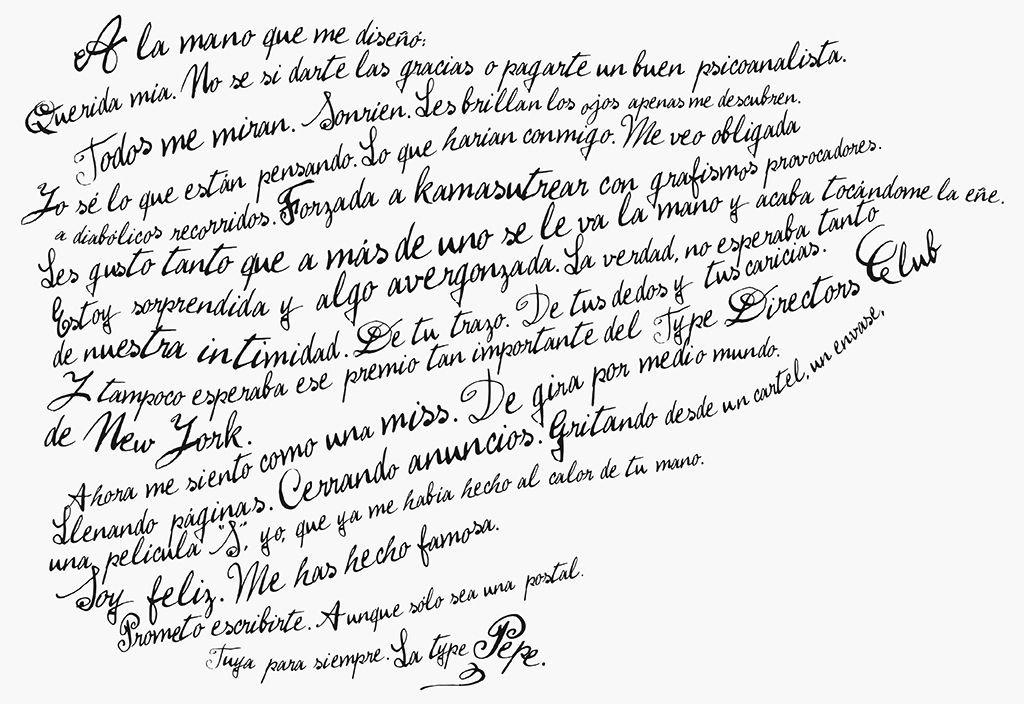 A la mano que me diseñó:
Querida mía. No se si darte las gracias o pagarte un buen psicoanalista.
Todos me miran. Sonrien. Les brillan los ojos apenas me descubren.
Yo sé lo que están pensando. Lo que harían conmigo. Me veo obligada
a diabólicos recorridos. Forzada a kamasutrear con grafismos provocadores.
Les gusto tanto que a más de uno se le va la mano y acaba tocándome la eñe.
Estoy sorprendida y algo avergonzada. La verdad, no esperaba tanto
de nuestra intimidad. De tu trazo. De tus dedos y tus caricias.
Y tampoco esperaba ese premio tan importante del Type Directors Club
de New York.
Ahora me siento como una miss. De gira por medio mundo.
Llenando páginas. Cerrando anuncios. Gritando desde un cartel, un envase,
una película "S", yo, que ya me había hecho al calor de tu mano.
Soy feliz. Me has hecho famosa.
Prometo escribirte. Aunque sólo sea una postal.
Tuya para siempre. La type Pepe.